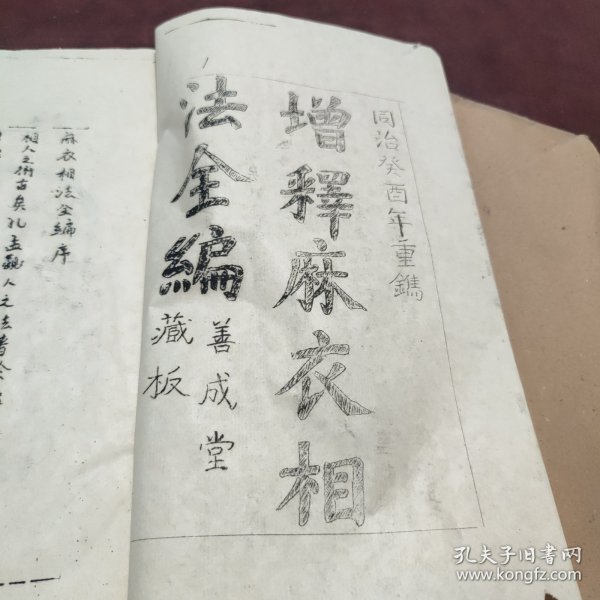 同治癸酉年重鐫
增釋麻衣相
法全編
善成堂
藏板
麻衣相法全編序
相人之術古矣孔孟
人之法書
孔夫子旧书网
www.kongfz.com